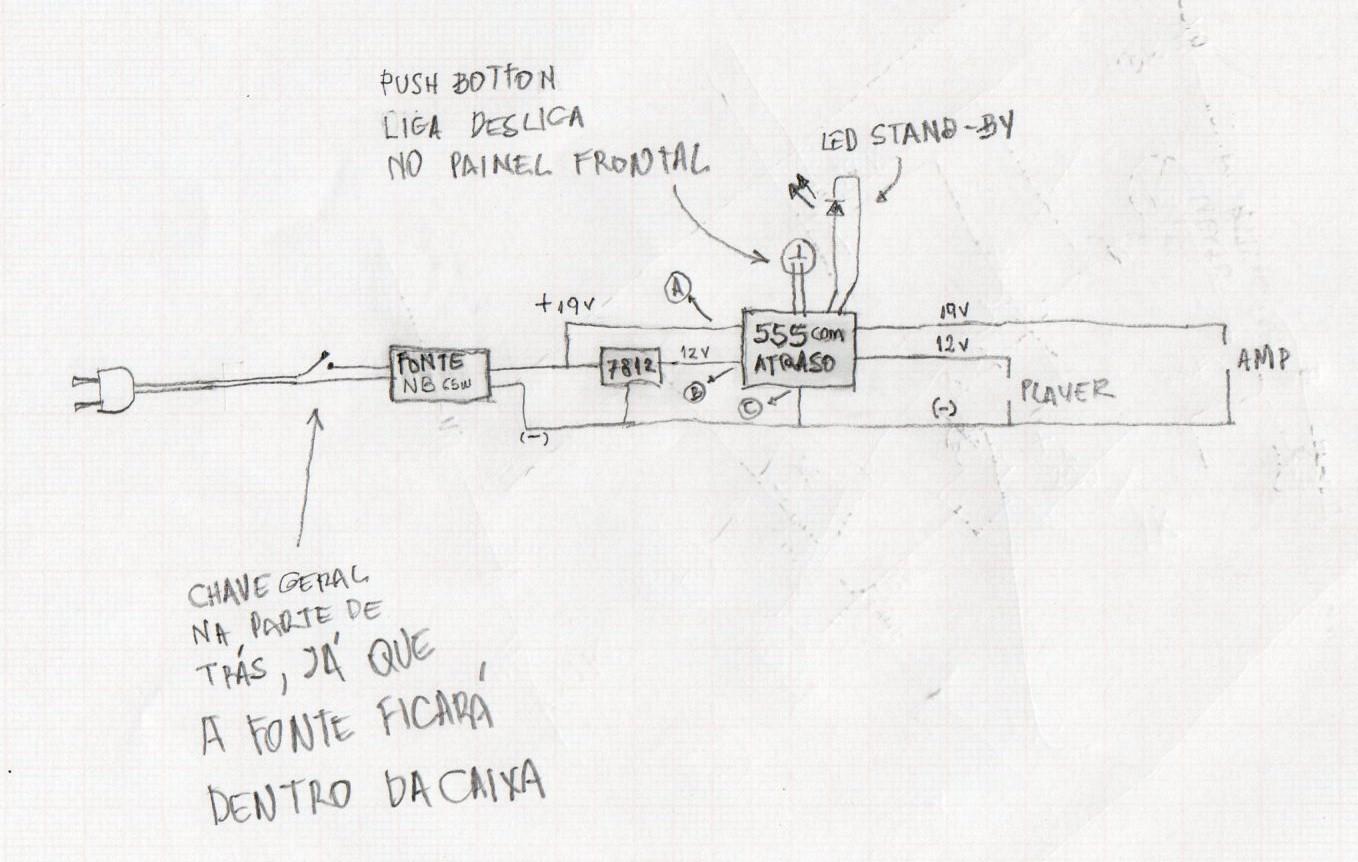 PUSH BOTTON
LIGA DESLIGA
NO PAINEL FRONTAL
LED STAND-BY
+19V
A
555 COM
ATRASO
19V
12V
AMP
FONTE
NB 65W
7812
12V
B
C
PLAYER
(-)
(-)
CHAVE GERAL
NA PARTE DE
TRÁS, JÁ QUE
A FONTE FICARÁ
DENTRO DA CAIXA